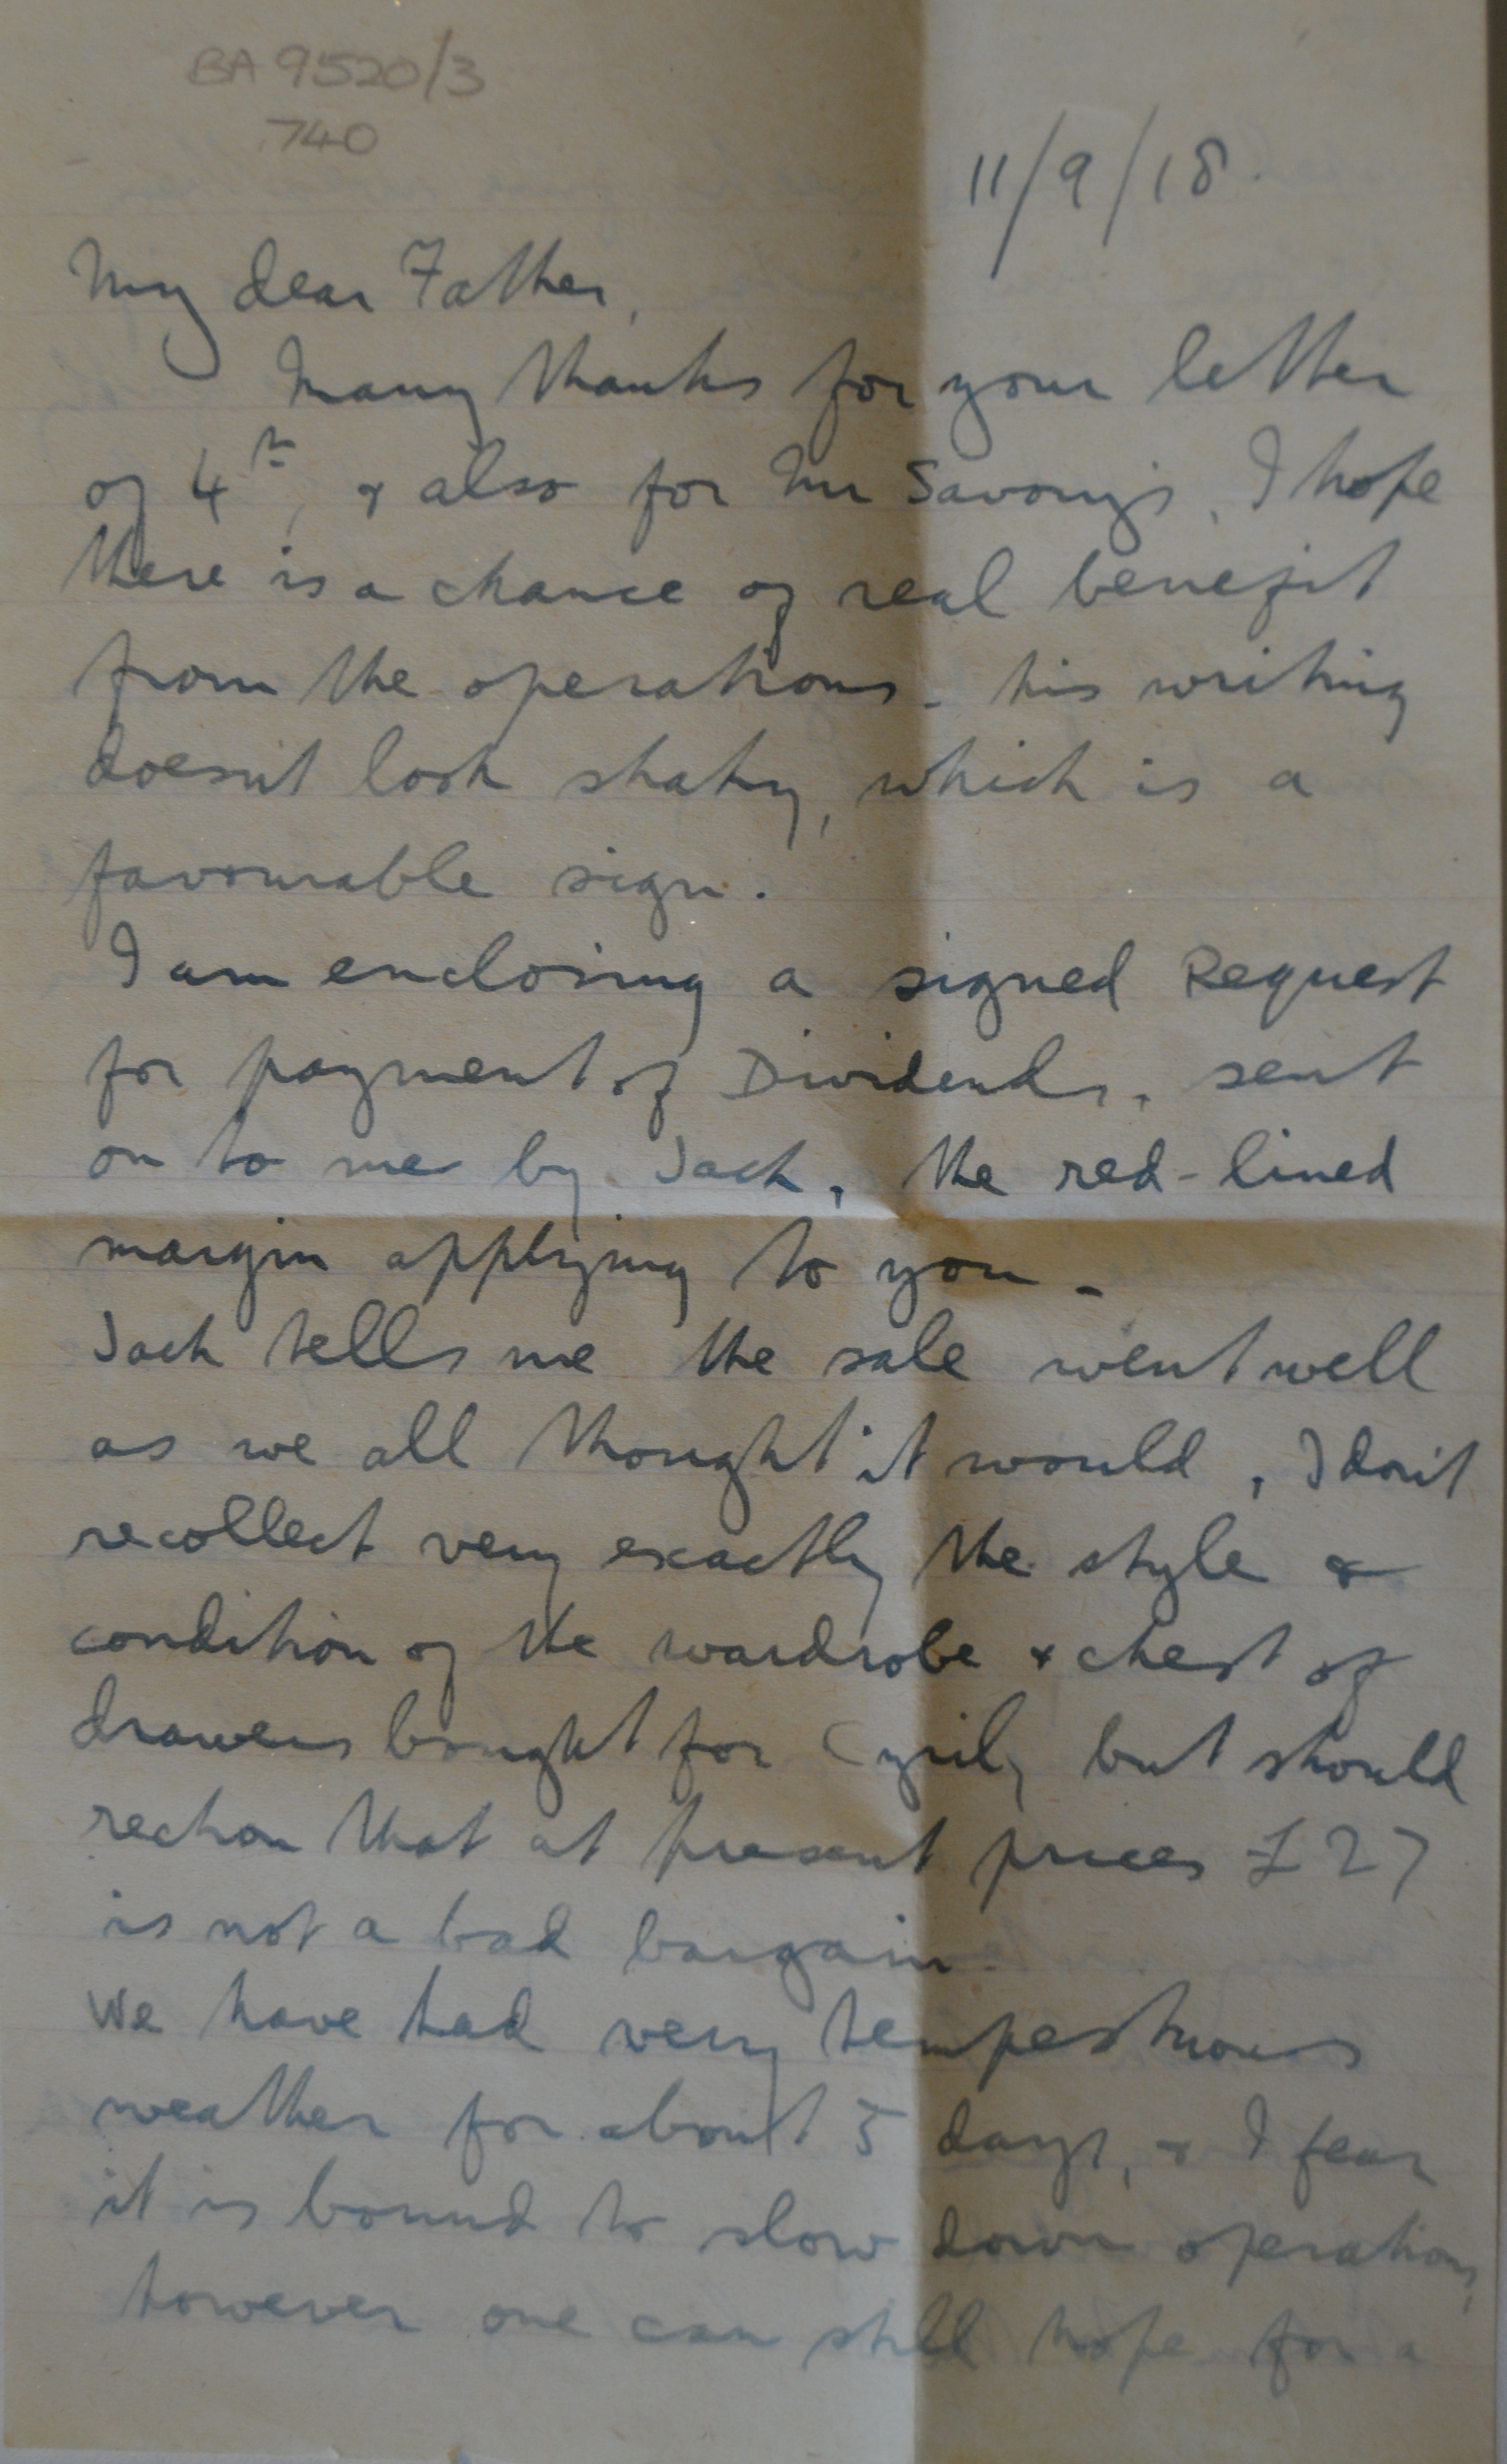 BA 9520/3
740
11/9/18.
My dear Father,
Many thanks for your letter
of 4th, & also for Mr Savory's, I hope
there is a chance of real benefit
from the operations - his writing
doesn't look shaky, which is a
favourable sign.
I am enclosing a signed Request
for payment of Dividends, sent
on to me by Jack, the red-lined
margin applying to you -
Jack tells me the sale went well
as we all thought it would, I don't
recollect very exactly the style &
condition of the wardrobe & chest of
drawers bought for Cyril, but should
reckon that at present prices £27
is not a bad bargain.
We have had very tempestuous
weather for about 5 days, & I fear
it is bound to slow down operations,
however one can still hope for a